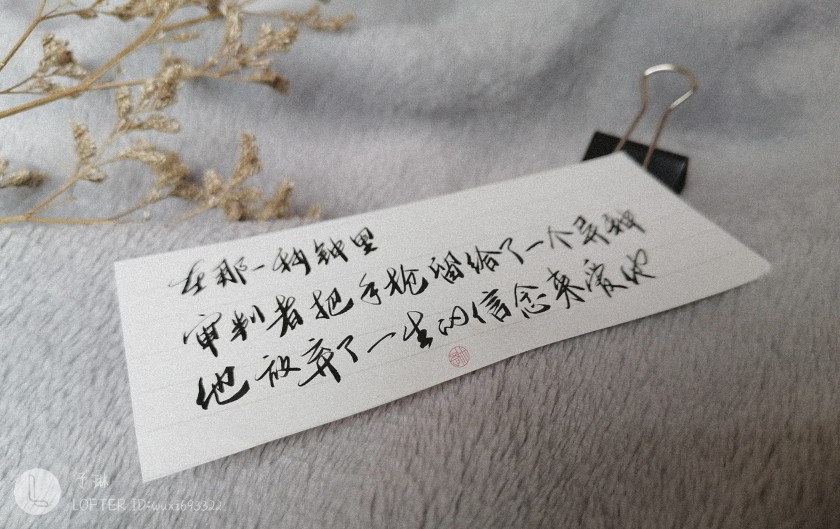 在那一秒钟里
审判者把手抢留给了一个异种
他放弃了一生的信念来爱他
LOFTER ID:wuxi693322